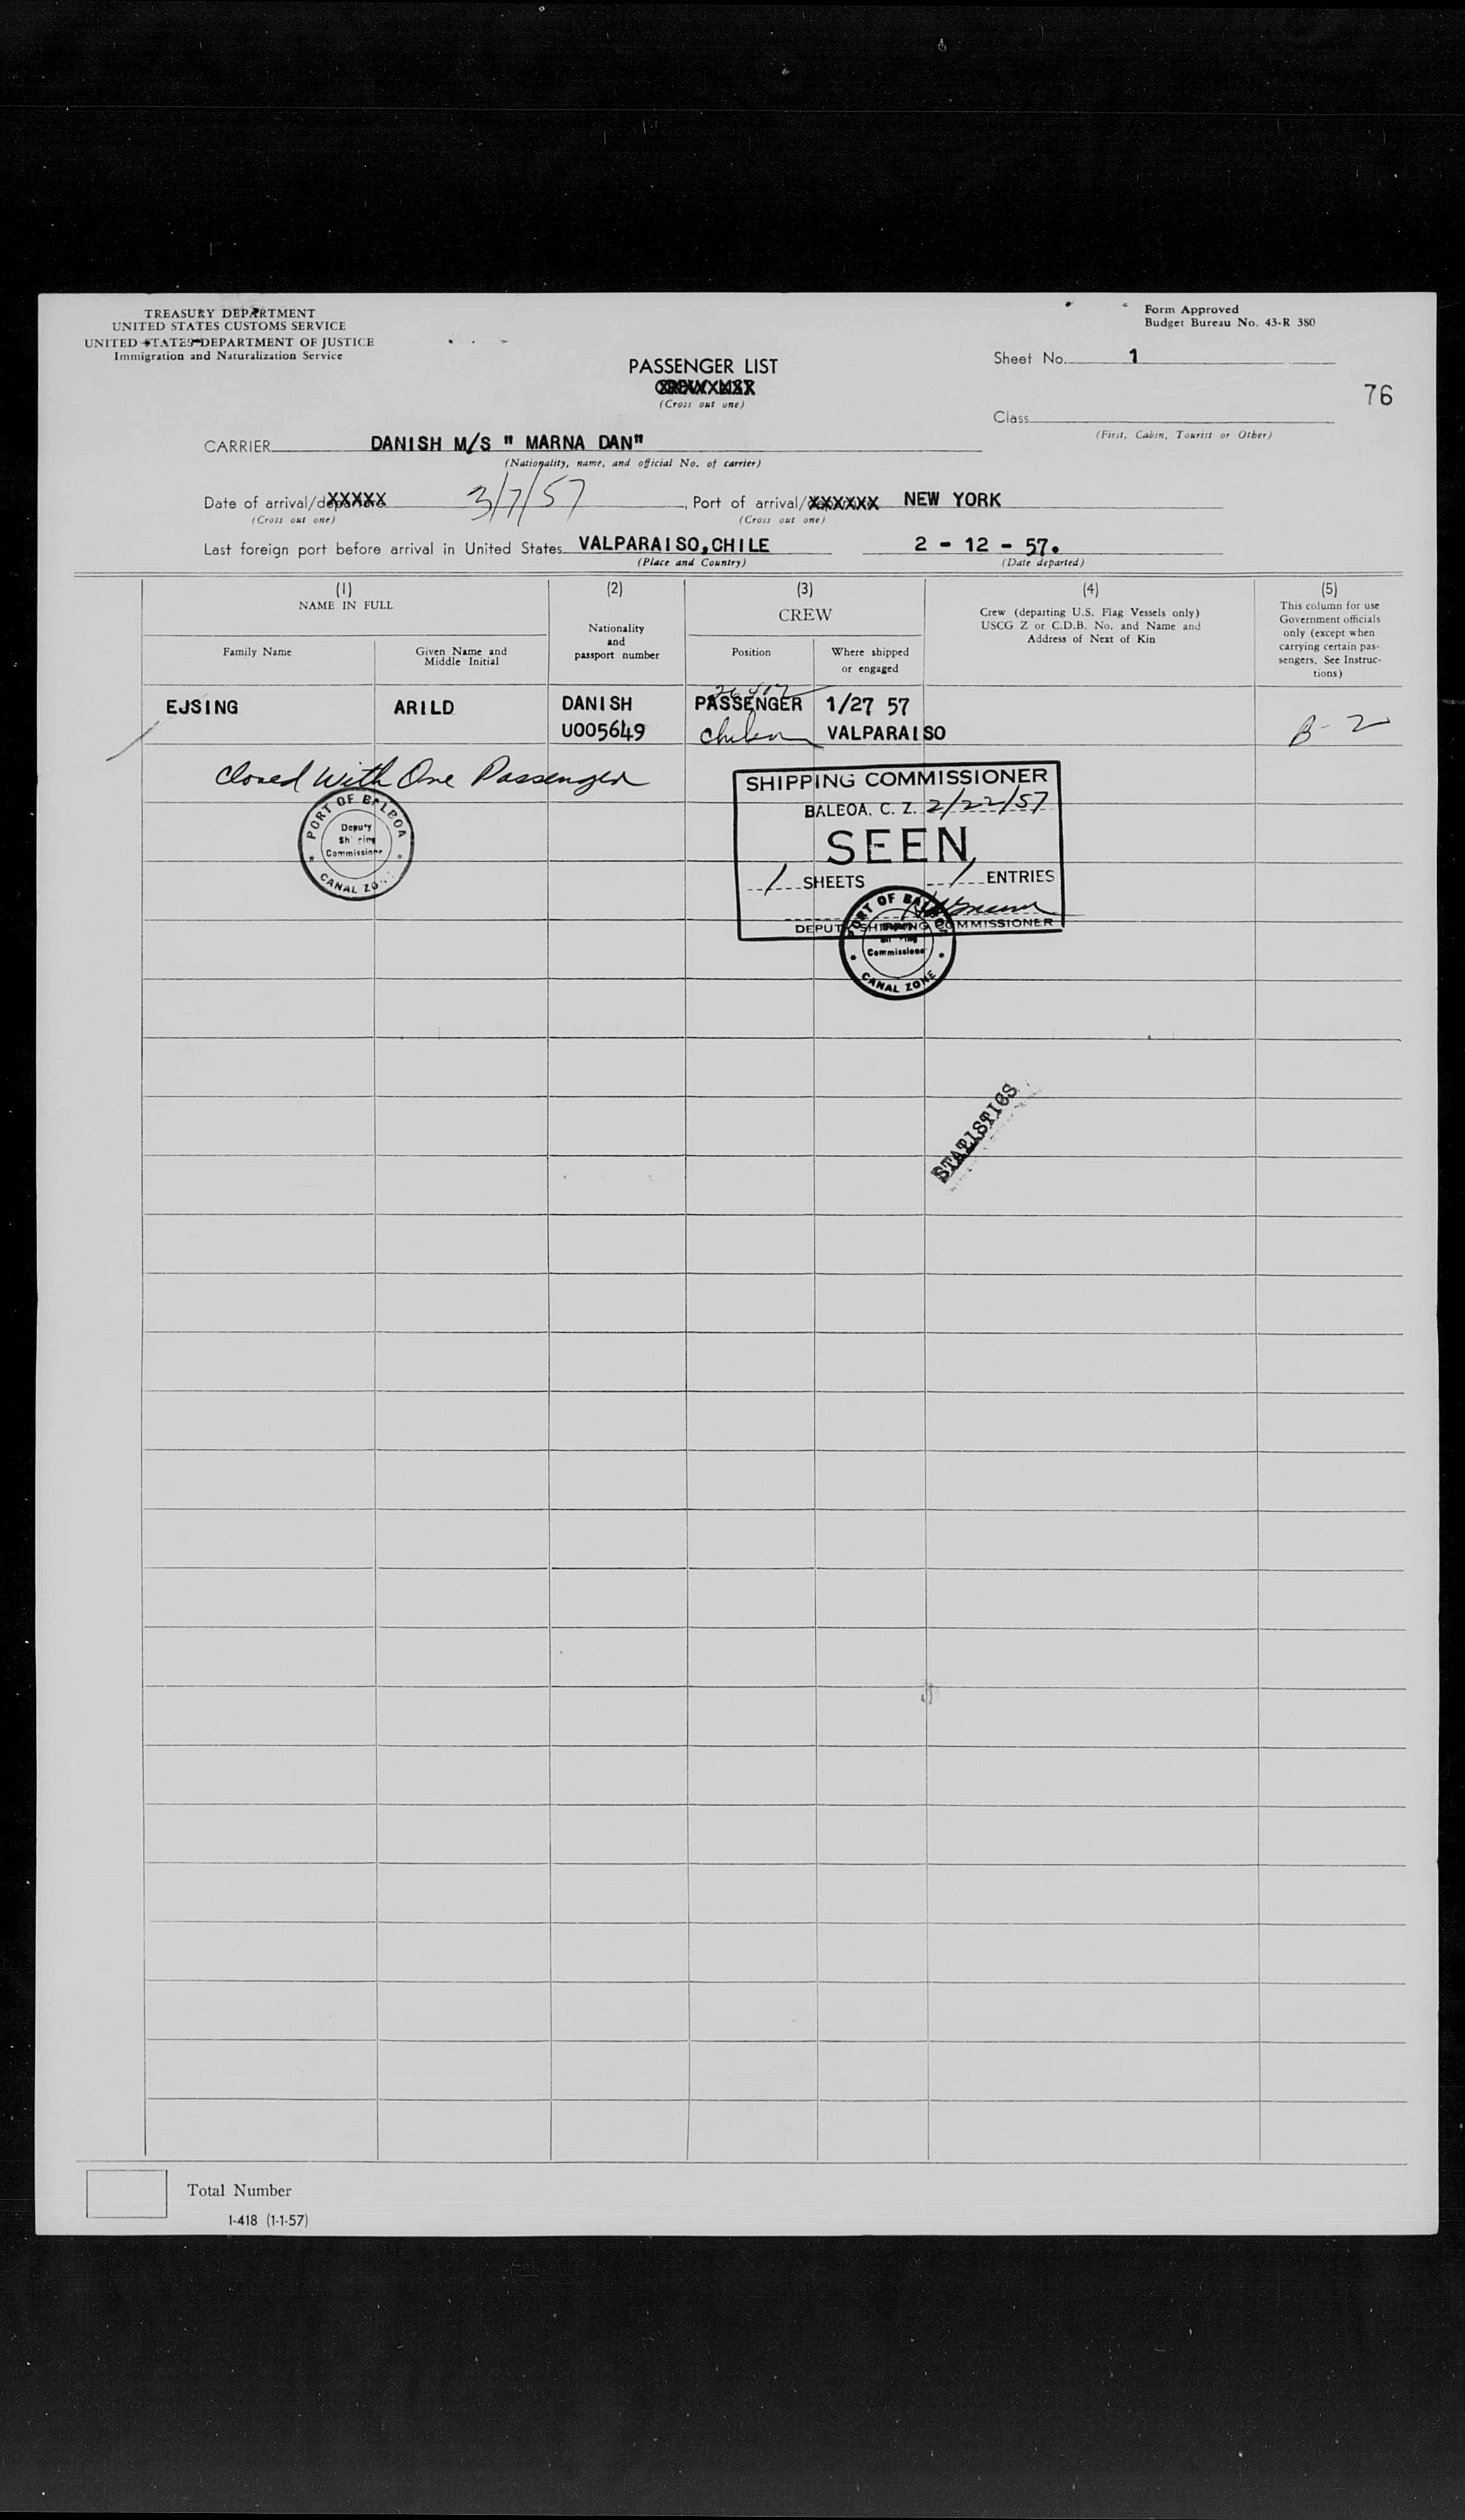 TREASURY DEPARTMENT
UNITED STATES CUSTOMS SERVICE
UNITED STATES DEPARTMENT OF JUSTICE
Immigration and Naturalization Service
Form Approved
Budget Bureau No. 43-R 380
Sheet No. 1
76
PASSENGER LIST
(Cross out one)
Class
(First, Cabin, Tourist or Other)
CARRIER DANISH M/S " MARNA DAN"
(Nationality, name, and official No. of carrier)
Date of arrival/departure 3/7/57, Port of arrival/departure NEW YORK
(Cross out one) (Cross out one)
Last foreign port before arrival in United States VALPARAISO, CHILE 2 - 12 - 57.
(Place and Country) (Date departed)
(1) (2) (3) (4) (5)
NAME IN FULL
Family Name
Given Name and Middle Initial
Nationality and passport number
CREW
Position
Where shipped or engaged
Crew (departing U.S. Flag Vessels only)
USCG Z or C.D.B. No. and Name and
Address of Next of Kin
This column for use
Government officials
only (except when
carrying certain pas-
sengers. See Instruc-
tions)
EJSING ARILD DANISH PASSENGER 1/27 57
U005649 VALPARAISO B-2
Closed With One Passenger
PORT OF BALBOA
Deputy
Shipping
Commissioner
CANAL ZONE
SHIPPING COMMISSIONER
BALBOA, C. Z. 2/22/57
SEEN
1 SHEETS 1 ENTRIES
DEPUTY SHIPPING COMMISSIONER
PORT OF BALBOA
Commissioner
CANAL ZONE
STATISTICS
Total Number
I-418 (1-1-57)